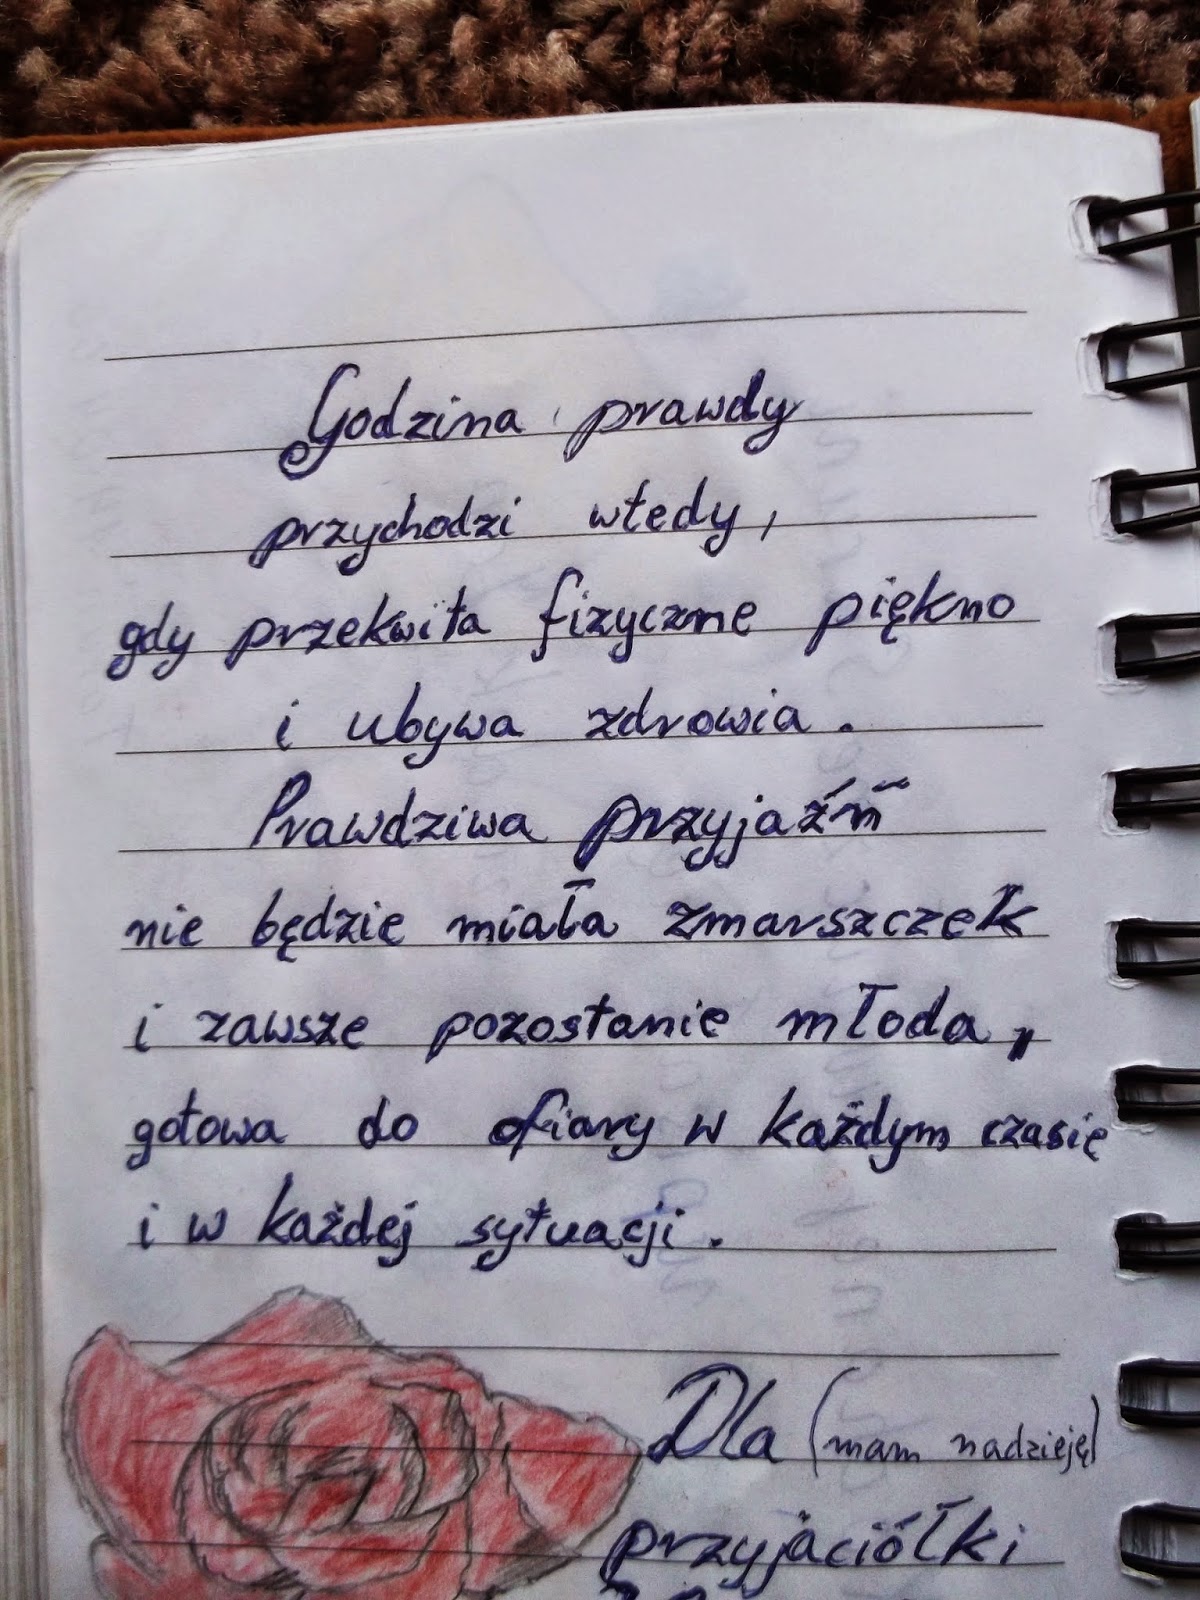 Godzina prawdy
przychodzi wtedy,
gdy przekwita fizyczne piękno
i ubywa zdrowia.
Prawdziwa przyjaźń
nie będzie miała zmarszczek
i zawsze pozostanie młoda,
gotowa do ofiary w każdym czasie
i w każdej sytuacji.
Dla (mam nadzieję)
przyjaciółki